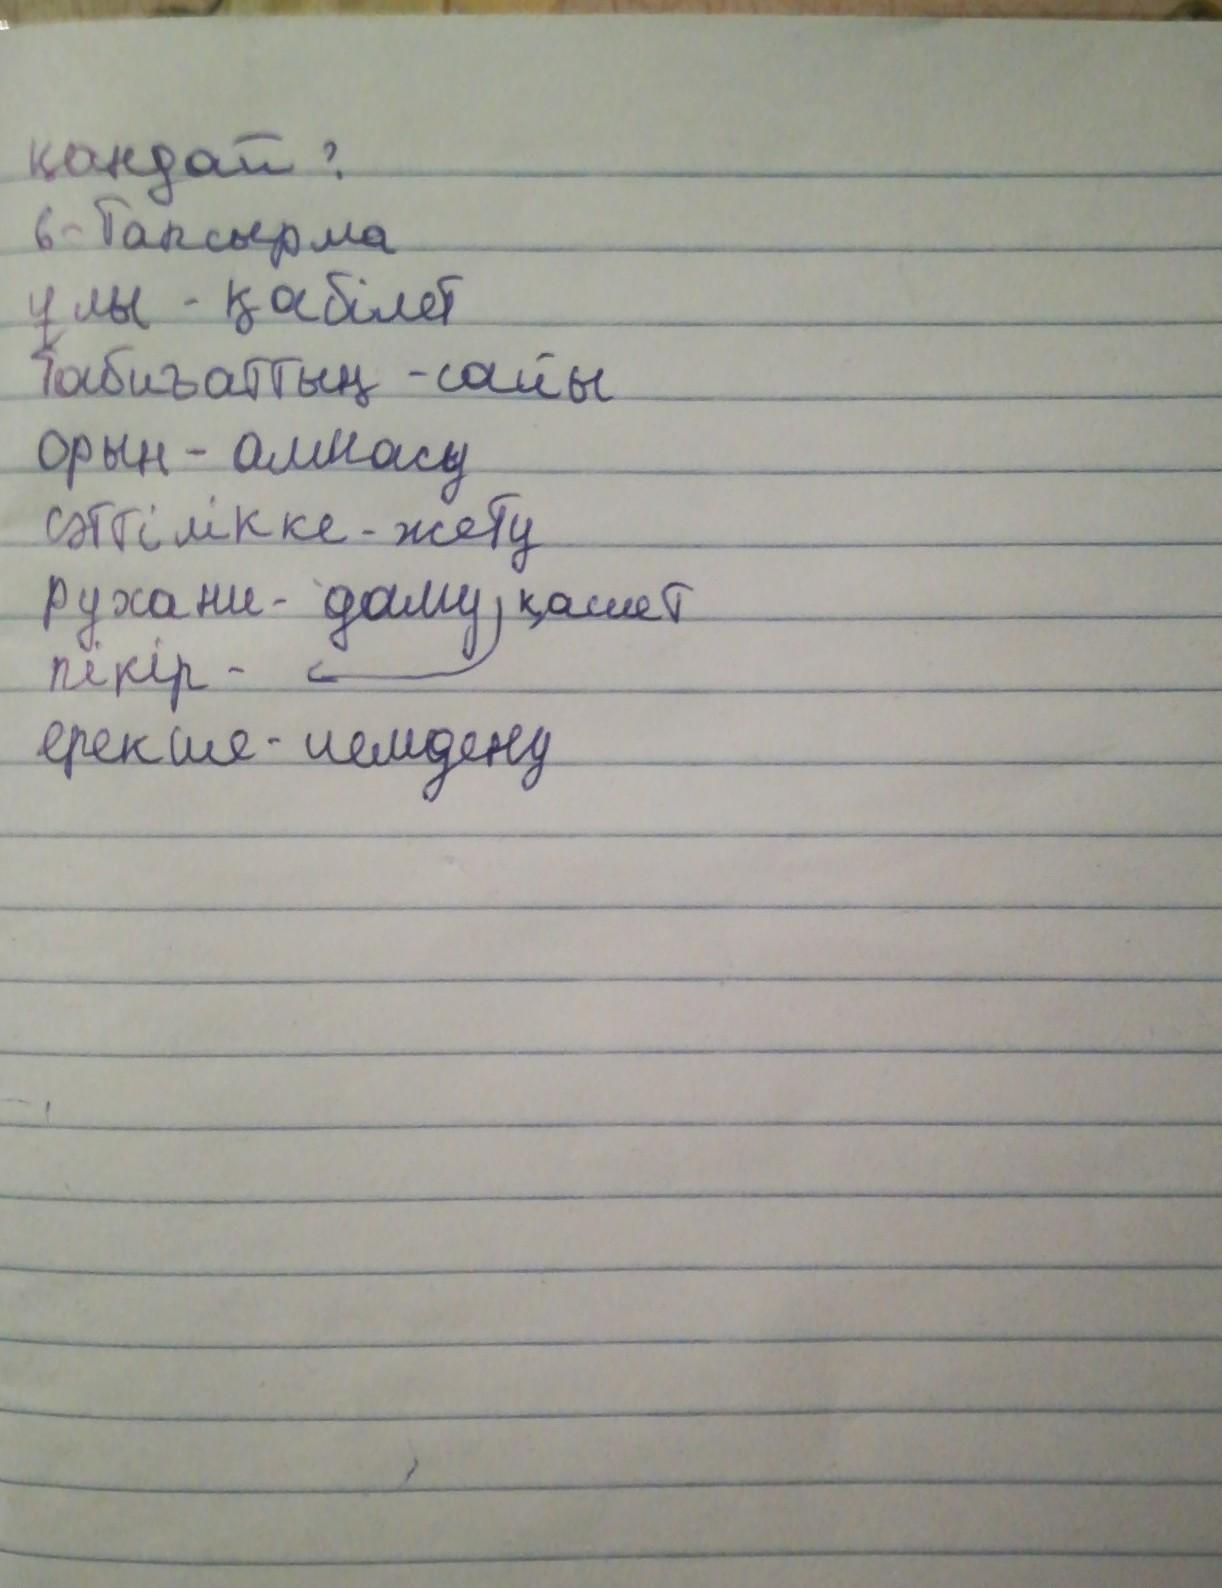 қандай?
6-Тапсырма
ұлы - қабілет
табиғаттың - сайы
орын - алмасу
сәттілікке - жету
рухани - даму, қасиет
пікір -
ерекше -